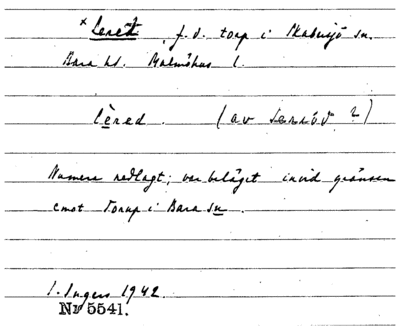 × Lered, f.d. torp i Skabersjö sn.
Bara hd. Malmöhus l.
lèred. (av Lerröd?)
Numera nedlagt; var beläget invid gränsen
emot Torup i Bara sn.
I. Ingers 1942.
No 5541.